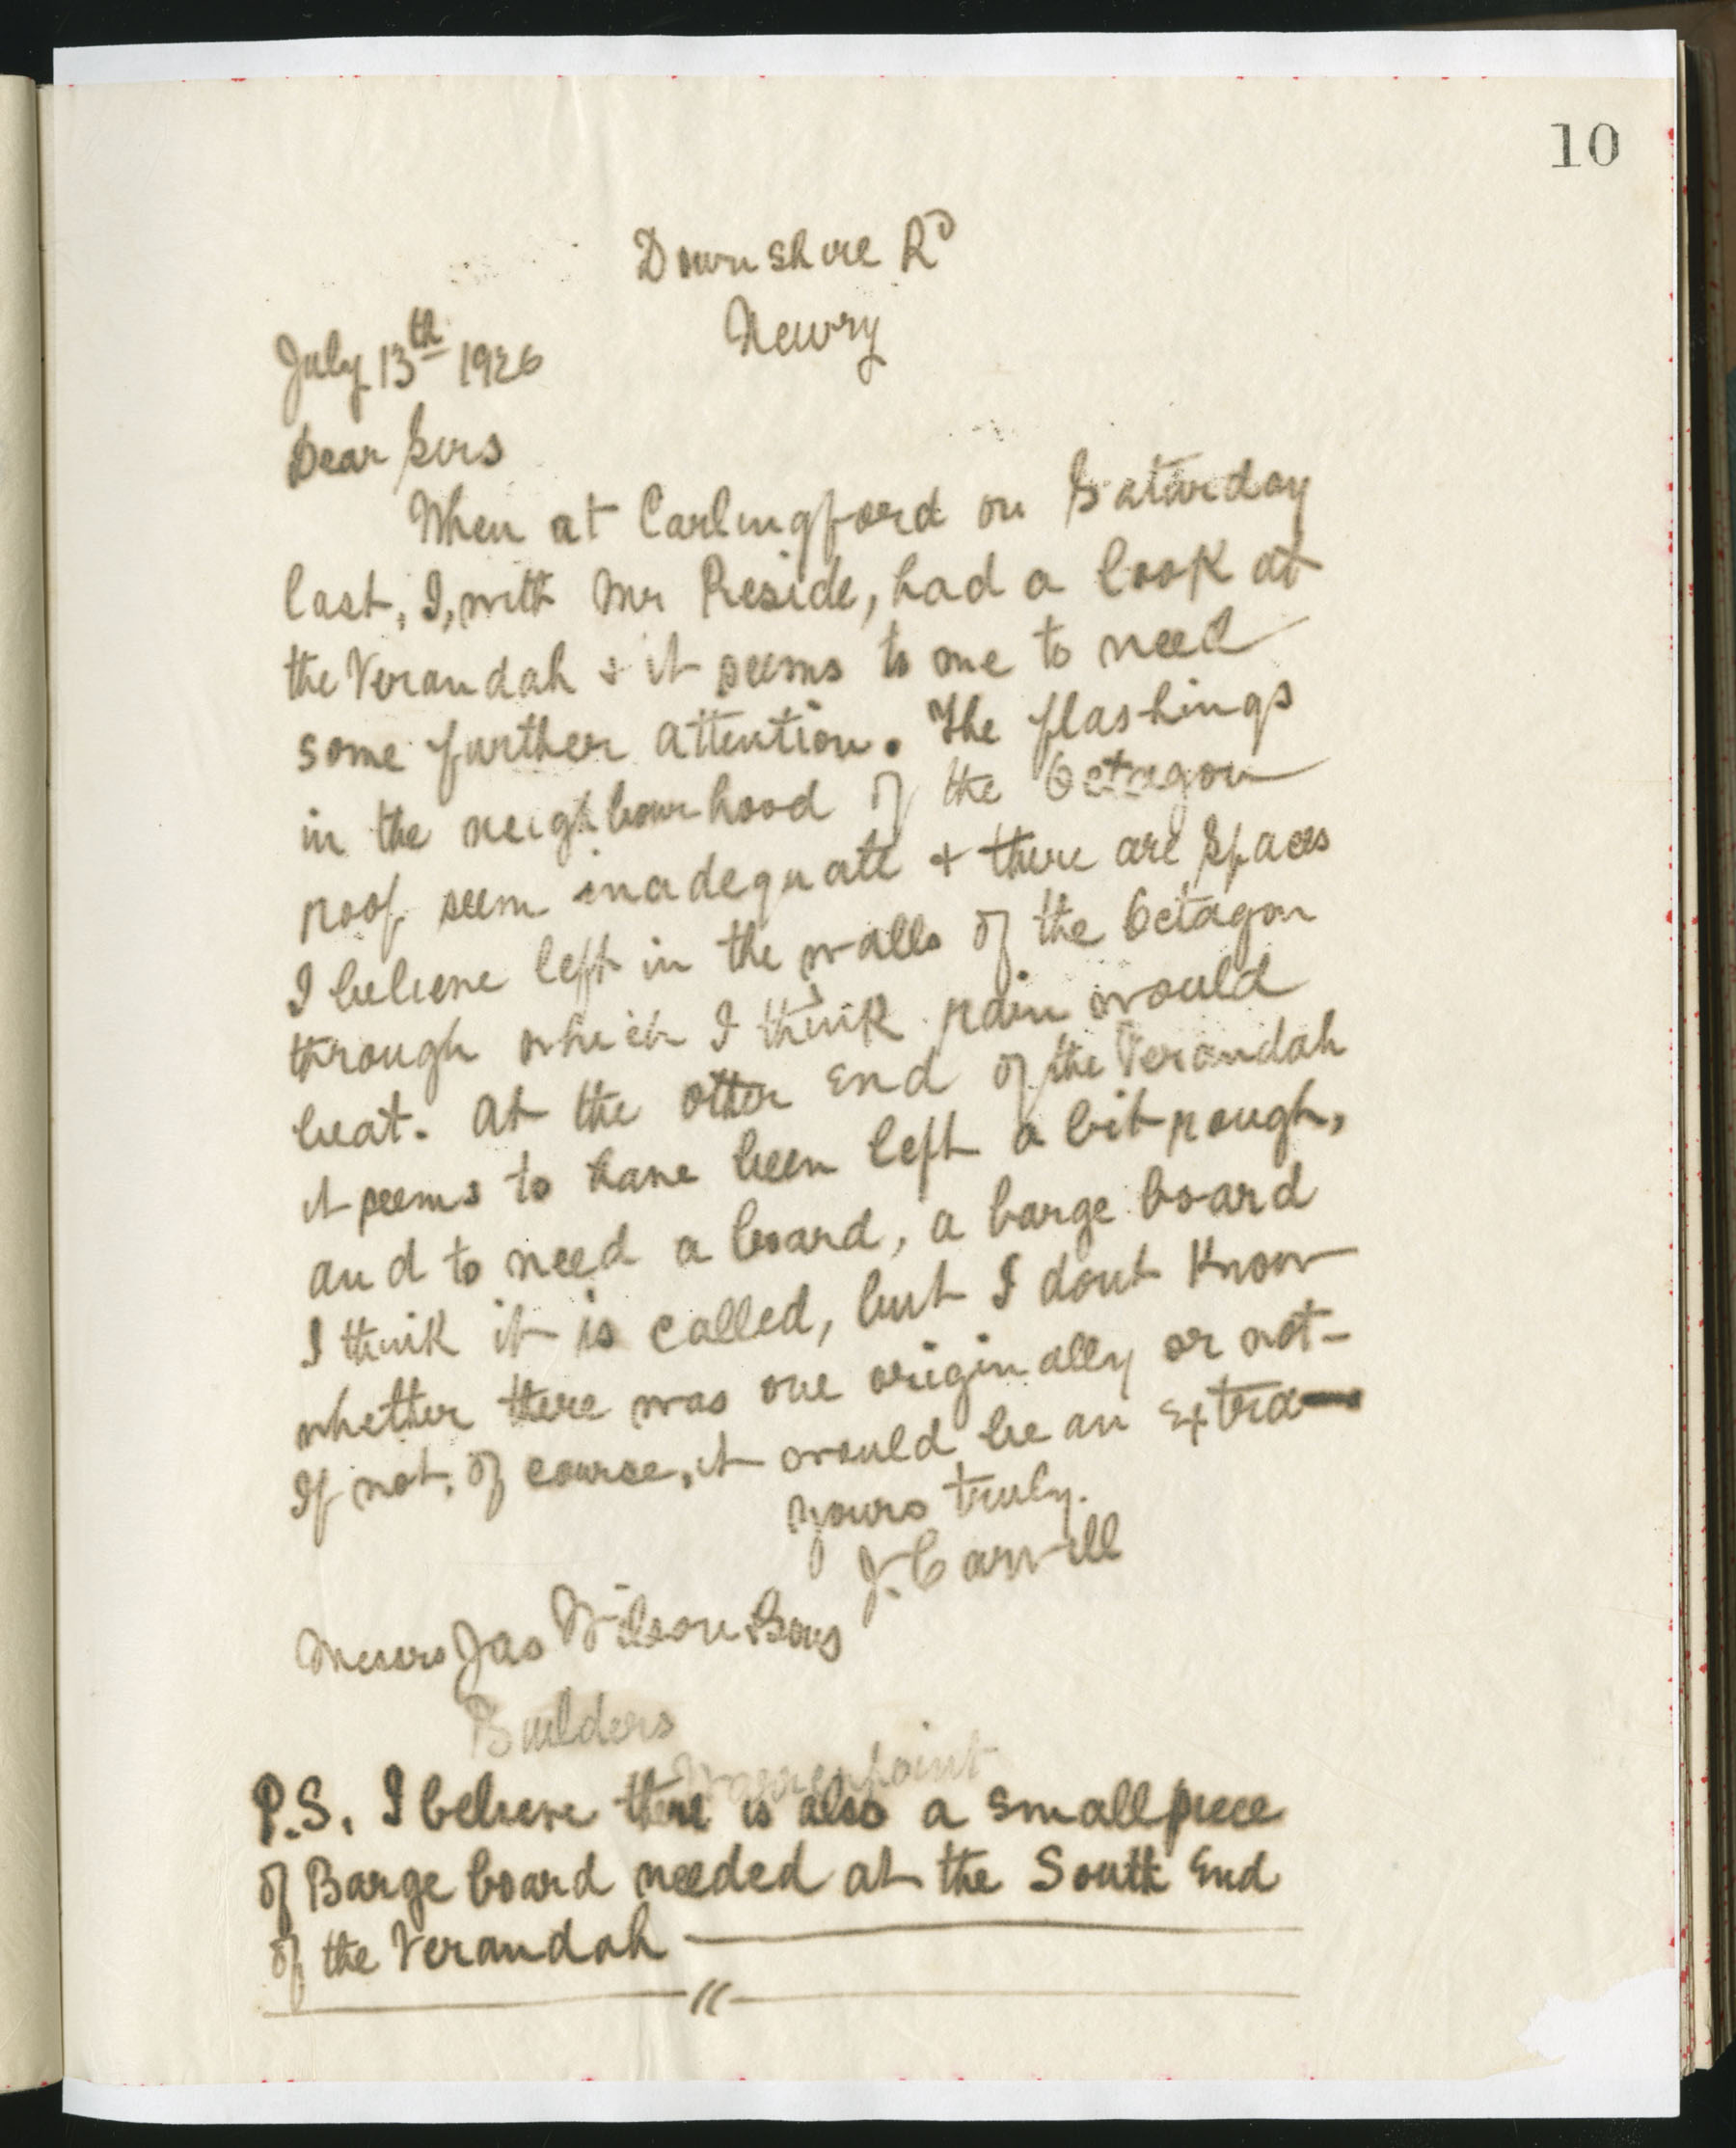 10
Downshire Rd
Newry
July 13th 1926
Dear Sirs
When at Carlingford on Saturday
last, I, with Mr Reside, had a look at
the Verandah & it seems to me to need
some further attention. The flashings
in the neighbourhood of the Octagon
roof seem inadequate & there are spaces
I believe left in the walls of the Octagon
through which I think rain would
beat. At the other end of the Verandah
it seems to have been left a bit rough,
and to need a board, a barge board
I think it is called, but I dont know
whether there was one originally or not-
If not, of course, it would be an extra
Yours truly.
J. Carvill
Messrs Jas Wilson & Sons
Builders
Warrenpoint
P.S. I believe there is also a small piece
of Barge board needed at the South End
of the Verandah